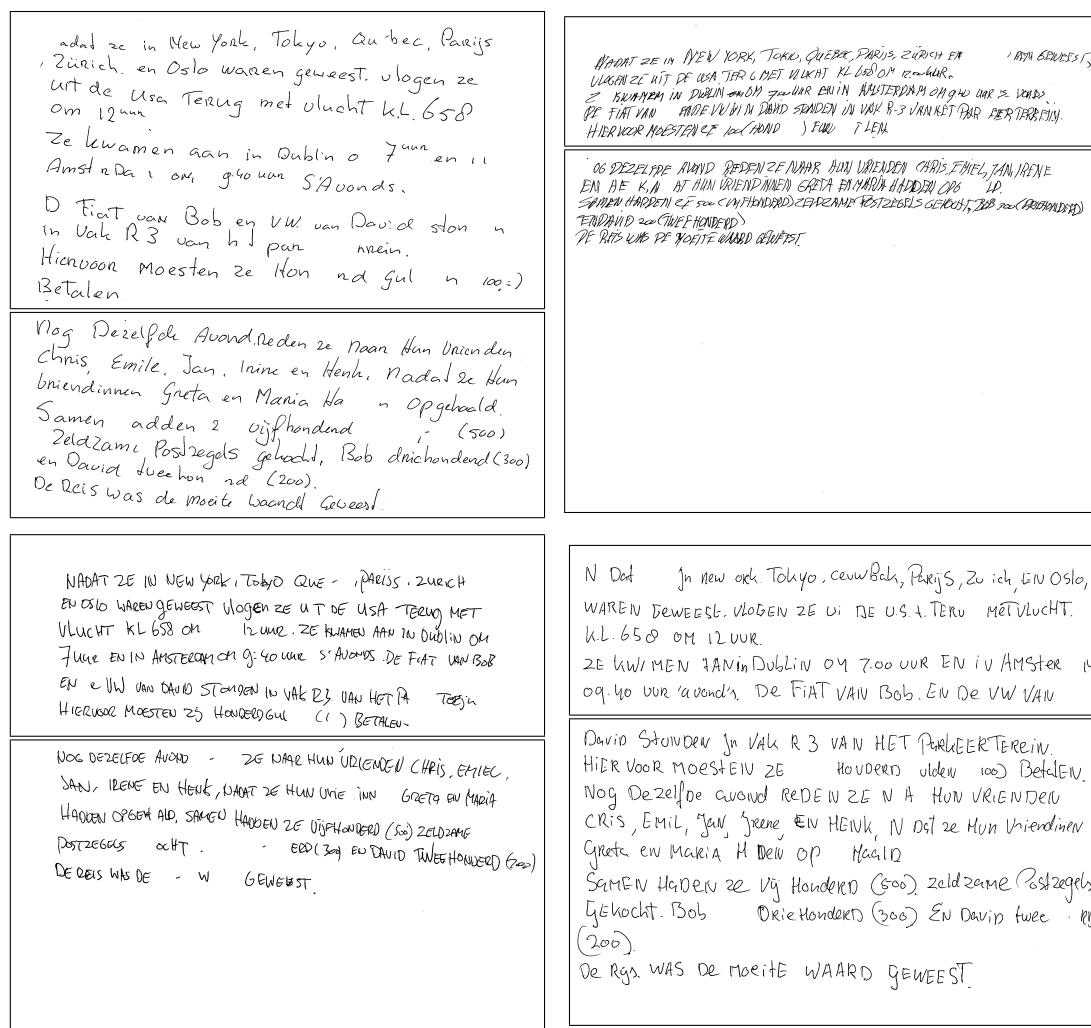 adat ze in New York, Tokyo, Qu bec, Parijs
, Zürich. en Oslo waren geweest. vlogen ze
uit de Usa Terug met vlucht K.L. 658
om 12 uur
Ze kwamen aan in Dublin o 7 uur en
Amst Da om, 9:40 uur S'Avonds.
D Fiat van Bob en VW. van David ston n
in Vak R 3 van h par rrein.
Hiervoor Moesten ze Hon nd gul n 100,=)
Betalen
Nog Dezelfde Avond. Reden ze naar Hun Vrienden
Chris, Emile, Jan, Irine en Henk. Nadat ze Hun
Vriendinnen Greta en Maria Ha n Opgehaald.
Samen adden z vijfhonderd (500)
Zeldzame Postzegels gekocht, Bob driehonderd (300)
en David tweehon nd (200).
De Reis was de moeite waardt Geweest.
NADAT ZE IN NEW YORK, TOKIO, QUEBEC, PARIJS, ZÜRICH EN GEWEEST,
VLOGEN ZE UIT DE USA TER G MET VLUCHT KL 658 OM 12 00 UUR.
Z KWAMEM IN DUBLIN OM 700 UUR EN IN AMSTERDAM OM 940 UUR
DE FIAT VAN ENDE VW IN DAVID STONDEN IN VAK R-3 VAN HET PAR EERTERREIN.
HIERVOOR MOESTEN ZE 100 (HOND )
OG DEZELFDE AVOND REDEN ZE NAAR HUN VRIENDEN CHRIS, EMIEL, JAN, IRENE
EN HE K, N AT HUN VRIENDINNEN GRETA EN MARIA HADDEN OPG
SAMEN HADDEN ZE 500 (VIJFHONDERD) ZELDZAME POSTZEGELS GEKOCHT, BOB 300 (DRIEHONDERD)
EN DAVID 200 (TWEEHONDERD)
DE REIS WAS DE MOEITE WAARD GEWEEST.
NADAT ZE IN NEW YORK, TOKYO QUE - , PARIJS, ZURICH
EN OSLO WAREN GEWEEST VLOGEN ZE U T DE USA TERUG MET
VLUCHT KL 658 OM 12 UUR. ZE KWAMEN AAN IN DUBLIN OM
7 UUR EN IN AMSTERDAM OM 9:40 UUR S'AVONDS. DE FIAT VAN BOB
EN e VW VAN DAVID STONDEN IN VAK R3 VAN HET PA
HIERVOOR MOESTEN ZIJ HONDERD GUL (1 ) BETALEN-
NOG DEZELFDE AVOND - ZE NAAR HUN VRIENDEN CHRIS, EMIEL,
JAN, IRENE EN HENK, NADAT ZE HUN VRIE INN GRETA EN MARIA
HADDEN OPGEH ALD, SAMEN HADDEN ZE VIJFHONDERD (500) ZELDZAME
POSTZEGELS OCHT . - ERD (300) EN DAVID TWEEHONDERD (200)
DE REIS WAS DE - W GEWEEST.
N Dat In new ork. Tokyo, ceuwBak, Parijs, Zu ich, EN Oslo,
WAREN GEWEEST. VLOGEN ZE Ui DE U.S.A. TERU METVLUCHT.
K.L. 658 OM 12 UUR.
ZE KW MEN AAN in Dublin OM 7.00 UUR EN iN AMSter
09.40 UUR 'avond's. De FiAT VAN Bob. EN De VW VAN
David Stonden In VAK R 3 VAN HET ParkeerTerein.
HiER VOOR MOESTEN ZE HONDERD ulden 100) Betalen.
Nog Dezelfde avond REDEN ZE N A HUN VRIENDEN
CRis, EMiL, Jan, Irene, EN HENK, N Dat ze Hun Vriendinen
Greta en MARiA H Den OP HaalD
SaMEN HaDEN ze Vij HonderD (500) zeldzame Postzegels
GEkocht. Bob DRieHonderD (300) EN DaviD twee
(200).
De Rijs. WAS De MoeitE WAARD GEWEEST.